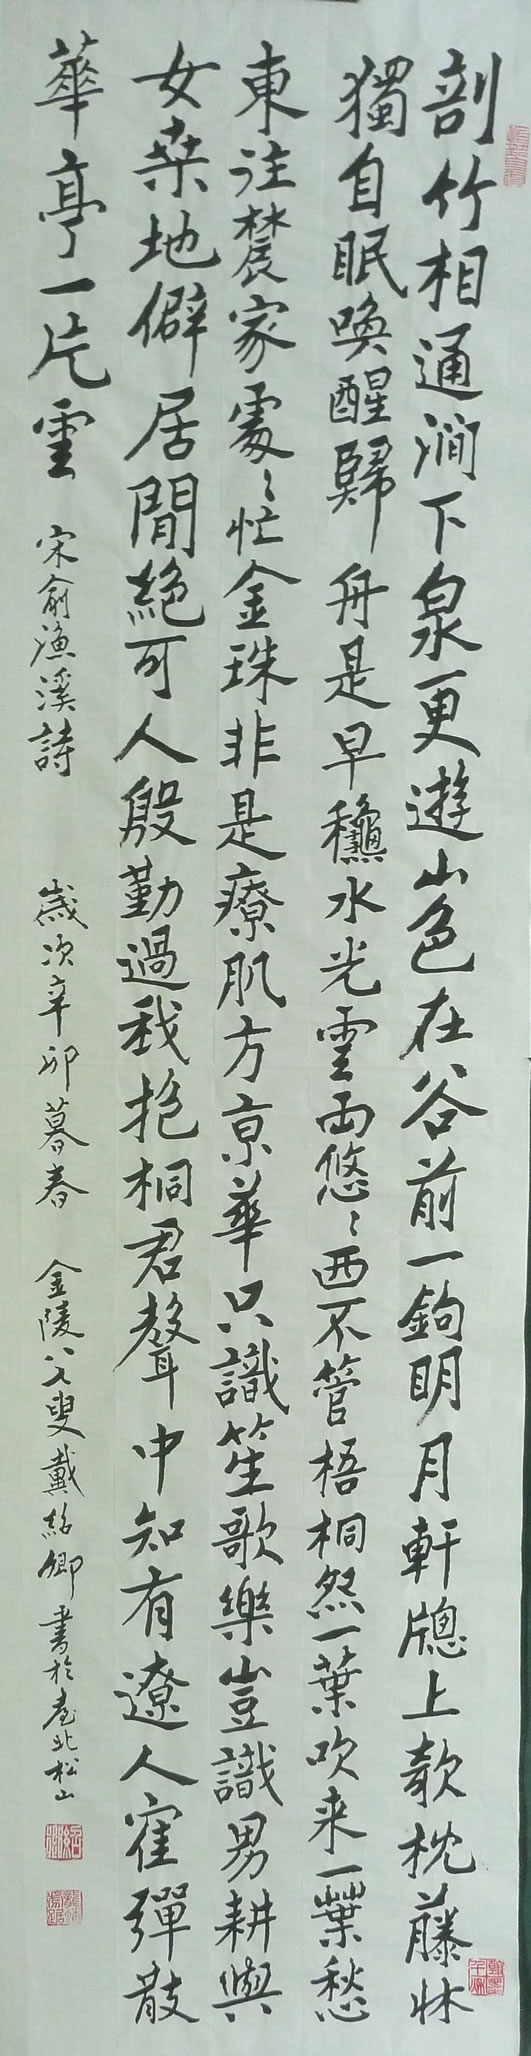 剖竹相通澗下泉更遊山色在谷前一鉤明月軒牕上欹枕藤牀
獨自眠喚醒歸舟是早穐水光雲雨悠〻西不管梧桐怨一葉吹来一葉愁
東注農家處〻忙金珠非是療肌方京華只識笙歌樂豈識男耕與
女桒地僻居閒絶可人殷勤過我抱桐君聲中知有遼人寉彈散
華亭一片雲 宋俞漁溪詩 歲次辛卯暮春 金陵八乂叟戴紹卿書於臺北松山